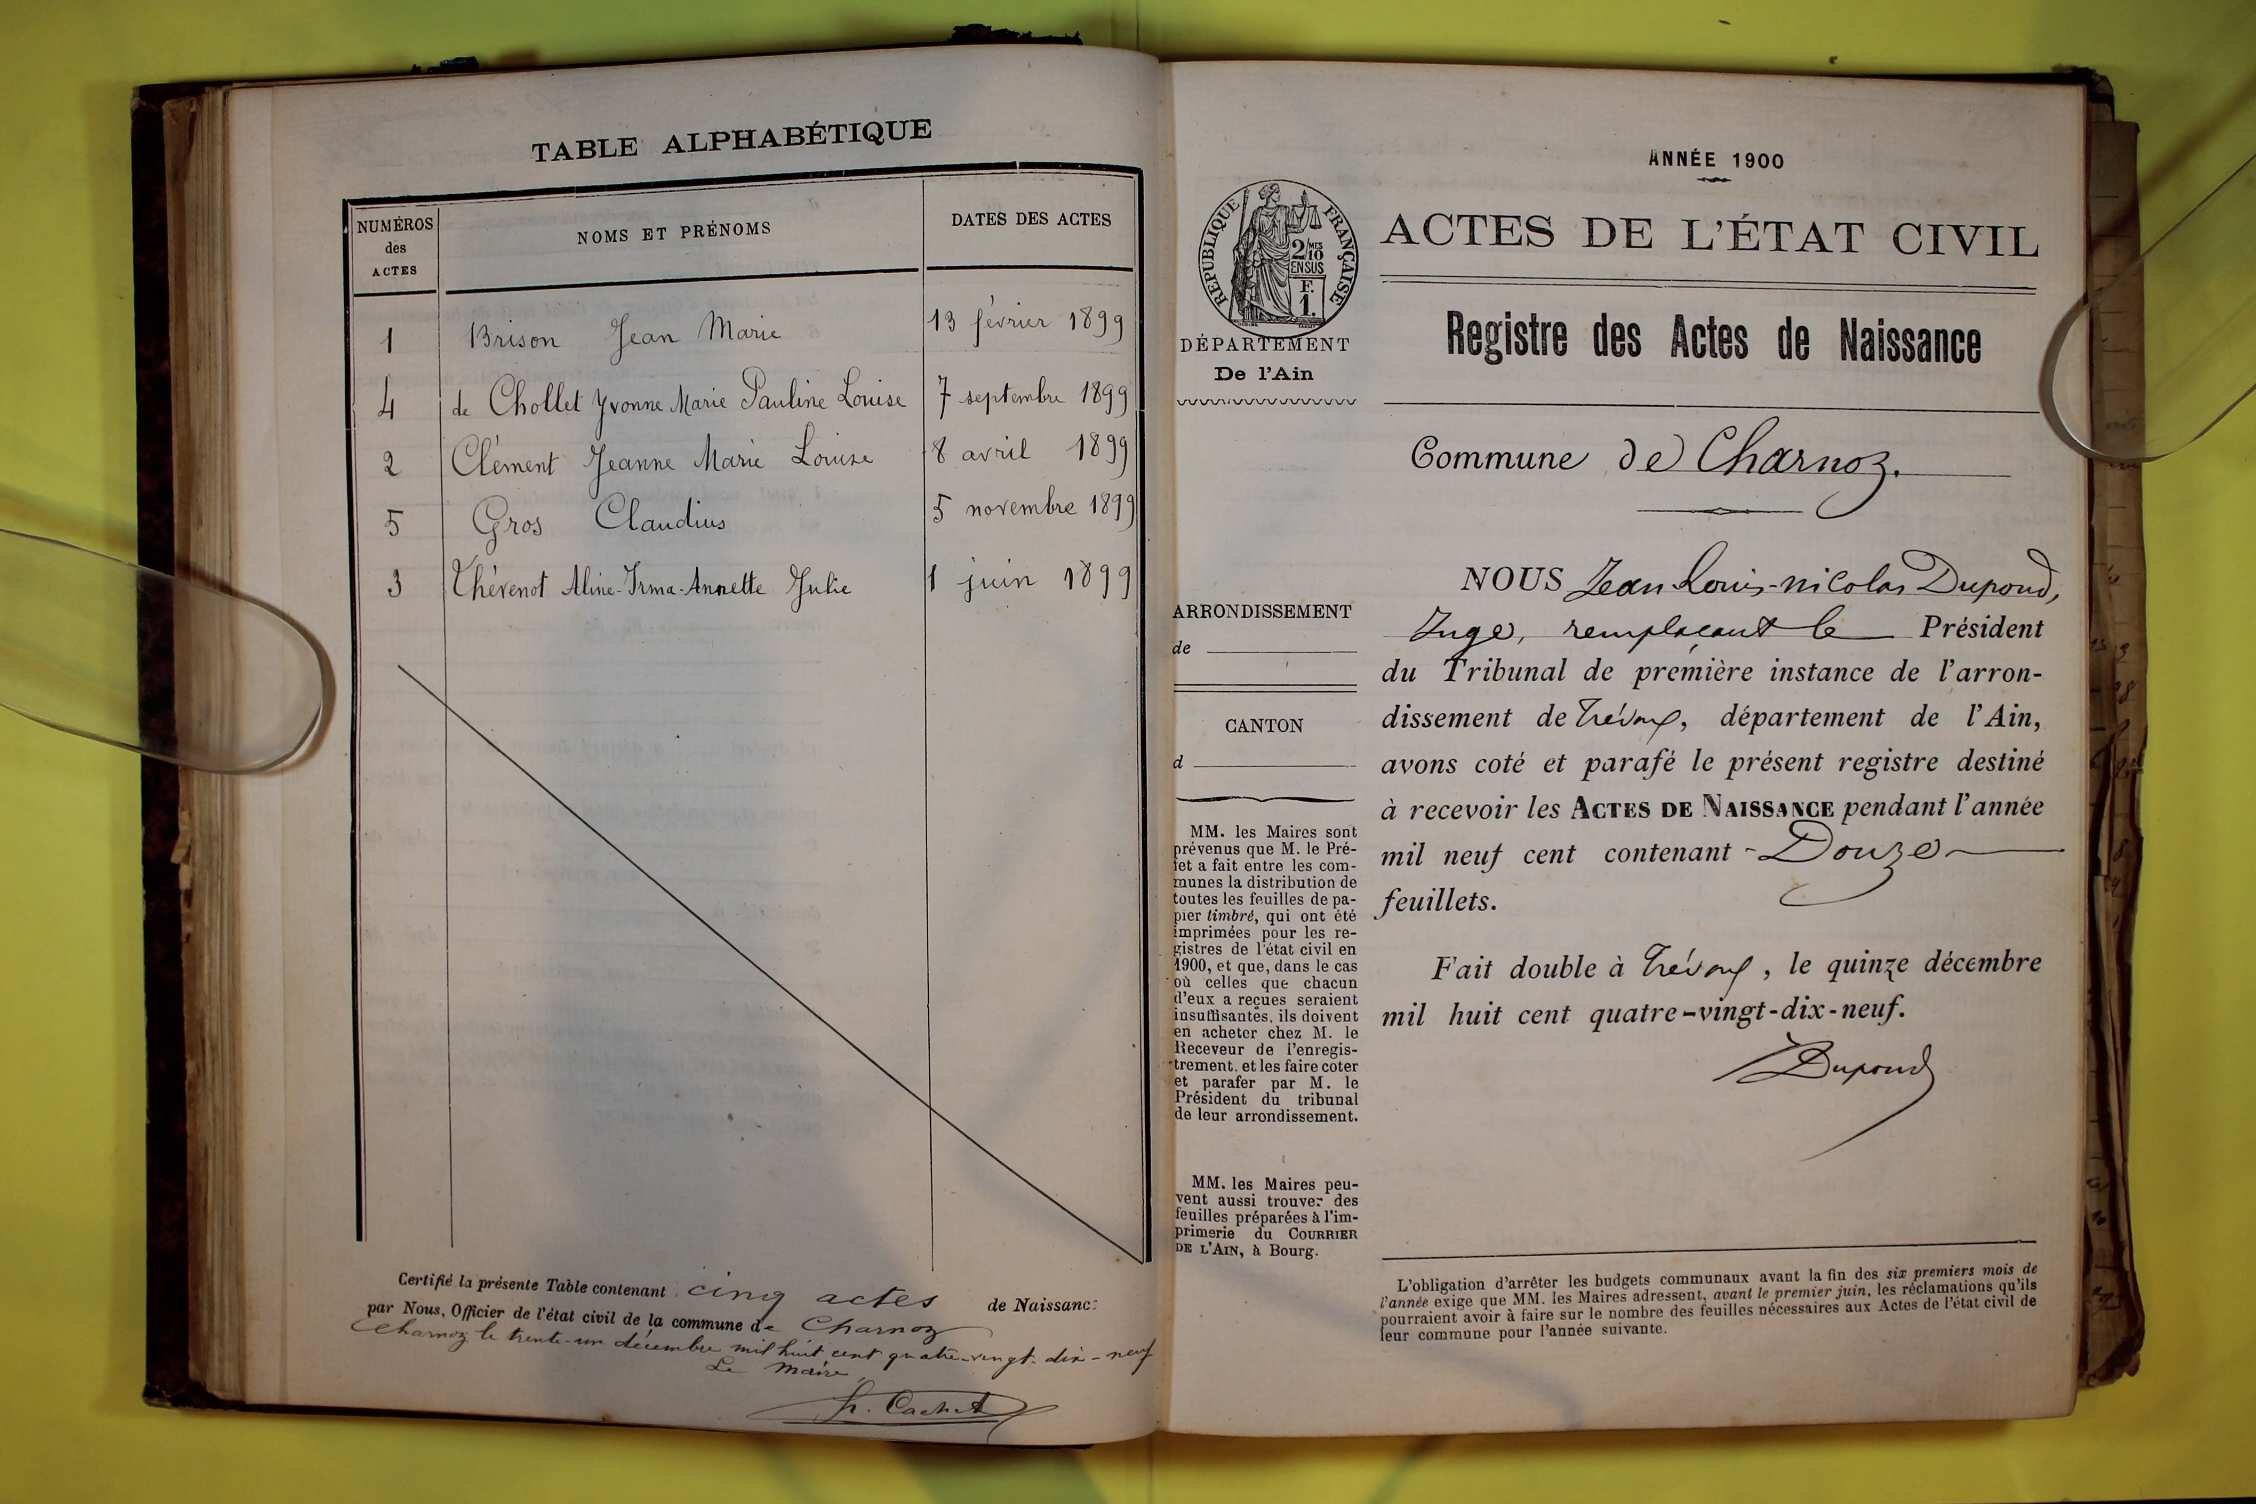 TABLE ALPHABÉTIQUE
NUMÉROS des ACTES NOMS ET PRÉNOMS DATES DES ACTES
1 Brison Jean Marie 13 février 1899
4 de Chollet Yvonne Marie Pauline Louise 7 septembre 1899
2 Clément Jeanne Marie Louise 8 avril 1899
5 Gros Claudius 5 novembre 1899
3 Thévenot Aline-Irma-Annette Julie 1 juin 1899
Certifié la présente Table contenant cinq actes de Naissance
par Nous, Officier de l'état civil de la commune de Charnoz
Charnoz le trente-un décembre mil huit cent quatre-vingt-dix-neuf
Le Maire,
Cachet
RÉPUBLIQUE FRANÇAISE
2/10 MES
EN SUS
F.
1.
DÉPARTEMENT
De l'Ain
ARRONDISSEMENT
de
CANTON
d
MM. les Maires sont
prévenus que M. le Pré-
fet a fait entre les com-
munes la distribution de
toutes les feuilles de pa-
pier timbré, qui ont été
imprimées pour les re-
gistres de l'état civil en
1900, et que, dans le cas
où celles que chacun
d'eux a reçues seraient
insuffisantes, ils doivent
en acheter chez M. le
Receveur de l'enregis-
trement, et les faire coter
et parafer par M. le
Président du tribunal
de leur arrondissement.
MM. les Maires peu-
vent aussi trouver des
feuilles préparées à l'im-
primerie du COURRIER
DE L'AIN, à Bourg.
ANNÉE 1900
ACTES DE L'ÉTAT CIVIL
Registre des Actes de Naissance
Commune de Charnoz.
NOUS Jean Louis-Nicolas Dupond,
Juge, remplaçant le Président
du Tribunal de première instance de l'arron-
dissement de Trévoux, département de l'Ain,
avons coté et parafé le présent registre destiné
à recevoir les ACTES DE NAISSANCE pendant l'année
mil neuf cent contenant - Douze
feuillets.
Fait double à Trévoux, le quinze décembre
mil huit cent quatre-vingt-dix-neuf.
Dupond
L'obligation d'arrêter les budgets communaux avant la fin des six premiers mois de
l'année exige que MM. les Maires adressent, avant le premier juin, les réclamations qu'ils
pourraient avoir à faire sur le nombre des feuilles nécessaires aux Actes de l'état civil de
leur commune pour l'année suivante.